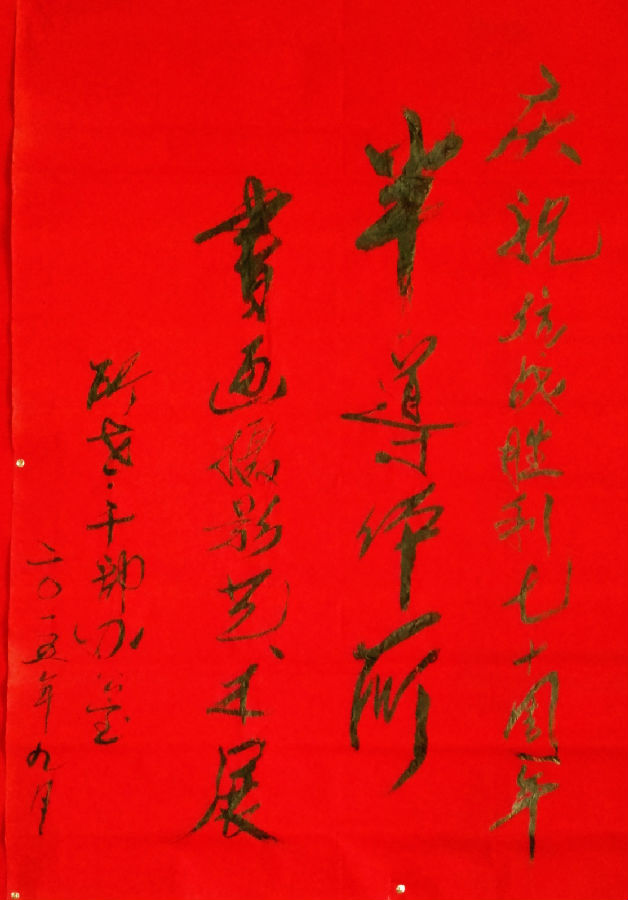 庆祝抗战胜利七十周年
半导体所
書画摄影艺术展
所老干部办公室
二〇一五年九月